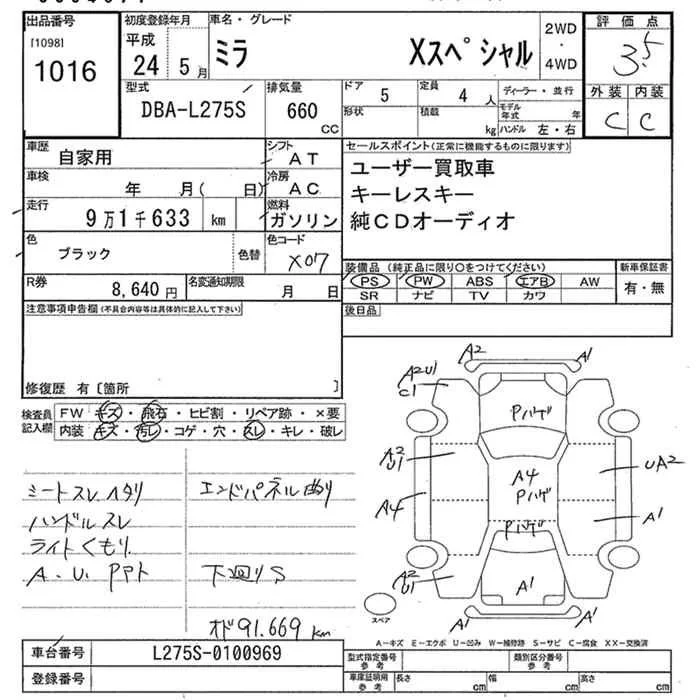 出品番号 初度登録年月 車名・グレード 2WD・4WD 評価点
[1098] 1016 平成 24年 5月 ミラ Xスペシャル 3.5
型式 排気量 ドア 5 定員 4人 ディーラー・並行 外装 内装
DBA-L275S 660cc 形状 積載 kg モデル年式 年 C C
ハンドル 左・右
車歴 自家用 シフト AT セールスポイント(正常に機能するものに限ります)
車検 年 月( 日) 冷房 AC ユーザー買取車
走行 9万1千633 km 燃料 ガソリン キーレスキー
純CDオーディオ
色 ブラック 色替 色コード X07
R券 8,640円 名変通知期限 月 日
装備品(純正品に限り○をつけてください) 新車保証書
PS PW ABS エアB AW 有・無
SR ナビ TV カワ
注意事項申告欄(不具合内容等は具体的に記入して下さい) 後日品
修復歴 有〔箇所 〕
検査員記入欄 FW キズ・飛石・ヒビ割・リペア跡・×要
内装 キズ・汚レ・コゲ・穴・スレ・キレ・破レ
シートスレ ヘタリ エンドパネル曲り
ハンドルスレ
ライトくもり
A.U. PPT 下回りS
オド91.669km
A2 A1
A2U1
C1
Pハゲ
A2
U1
A4
Pハゲ
UA2
A4
Pハゲ
A1
A2
U1
A1
A1 A1
スペア
A-キズ E-エクボ U-凹み W-補修跡 S-サビ C-腐食 XX-交換済
車台番号 L275S-0100969 型式指定番号 参考 類別区分番号 参考
登録番号 車庫証明用 参考 長さ cm 幅 cm 高さ cm